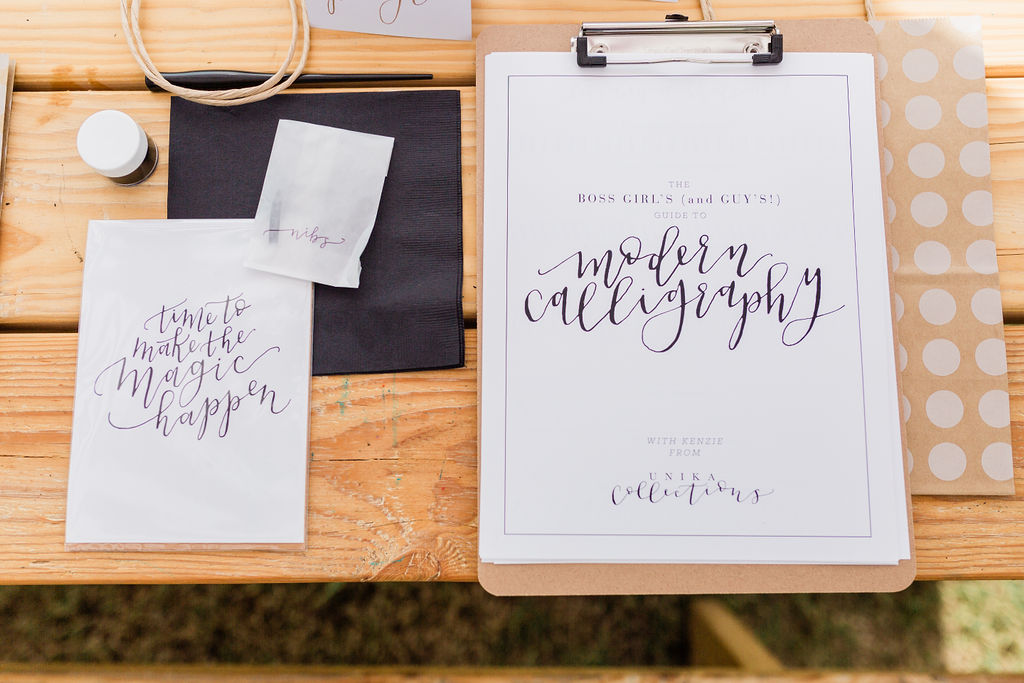 nibs
time to
make the
magic
happen
THE
BOSS GIRL'S (and GUY'S!)
GUIDE TO
modern
calligraphy
WITH KENZIE
FROM
UNIKA
collections